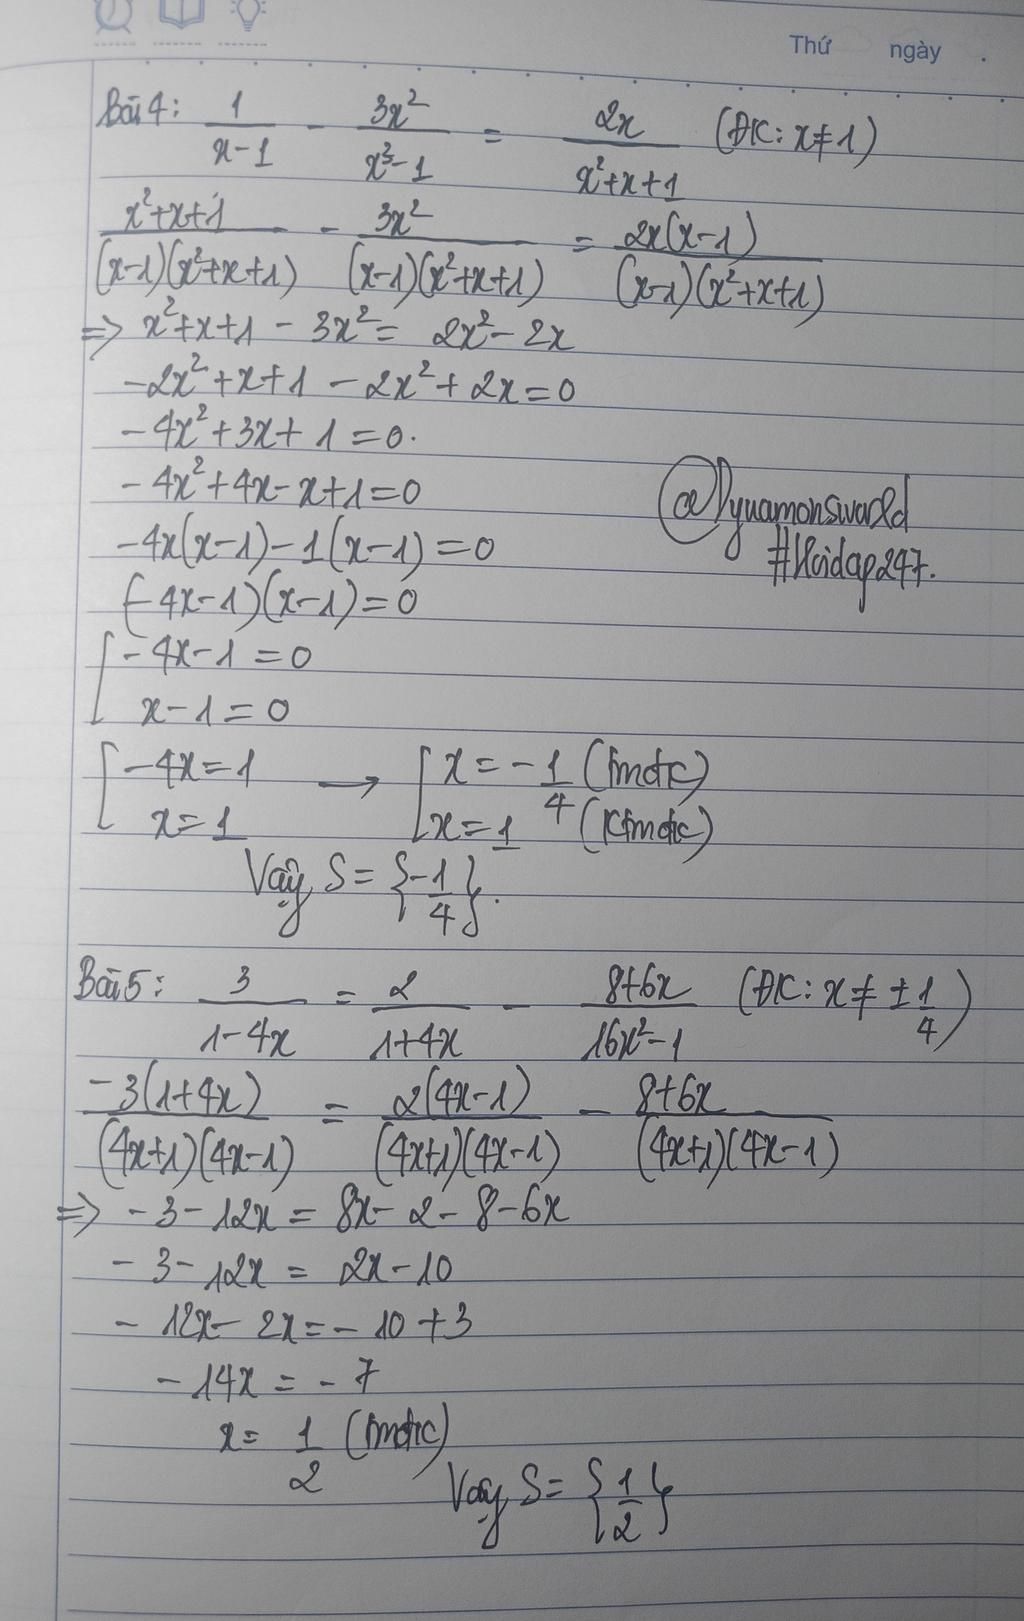 Thứ ngày .
Bài 4: 1/(x-1) - 3x²/(x³-1) = 2x/(x²+x+1) (ĐK: x≠1)
(x²+x+1)/((x-1)(x²+x+1)) - 3x²/((x-1)(x²+x+1)) = 2x(x-1)/((x-1)(x²+x+1))
=> x²+x+1 - 3x² = 2x² - 2x
-2x²+x+1 - 2x²+2x=0
-4x²+3x+1=0.
-4x²+4x-x+1=0
-4x(x-1)-1(x-1)=0
(-4x-1)(x-1)=0
[ -4x-1=0
x-1=0
[ -4x=1 → [ x=-1/4 (tmđk)
x=1 x=1 (Ktmđk)
Vậy S={-1/4}.
@Dynamonsworld
#Hoidap247.
Bài 5: 3/(1-4x) = 2/(1+4x) - (8+6x)/(16x²-1) (ĐK: x≠±1/4)
-3(1+4x)/((4x+1)(4x-1)) = 2(4x-1)/((4x+1)(4x-1)) - (8+6x)/((4x+1)(4x-1))
=> -3-12x = 8x-2-8-6x
-3-12x = 2x-10
-12x-2x=-10+3
-14x=-7
x=1/2 (tmđk)
Vậy S={1/2}